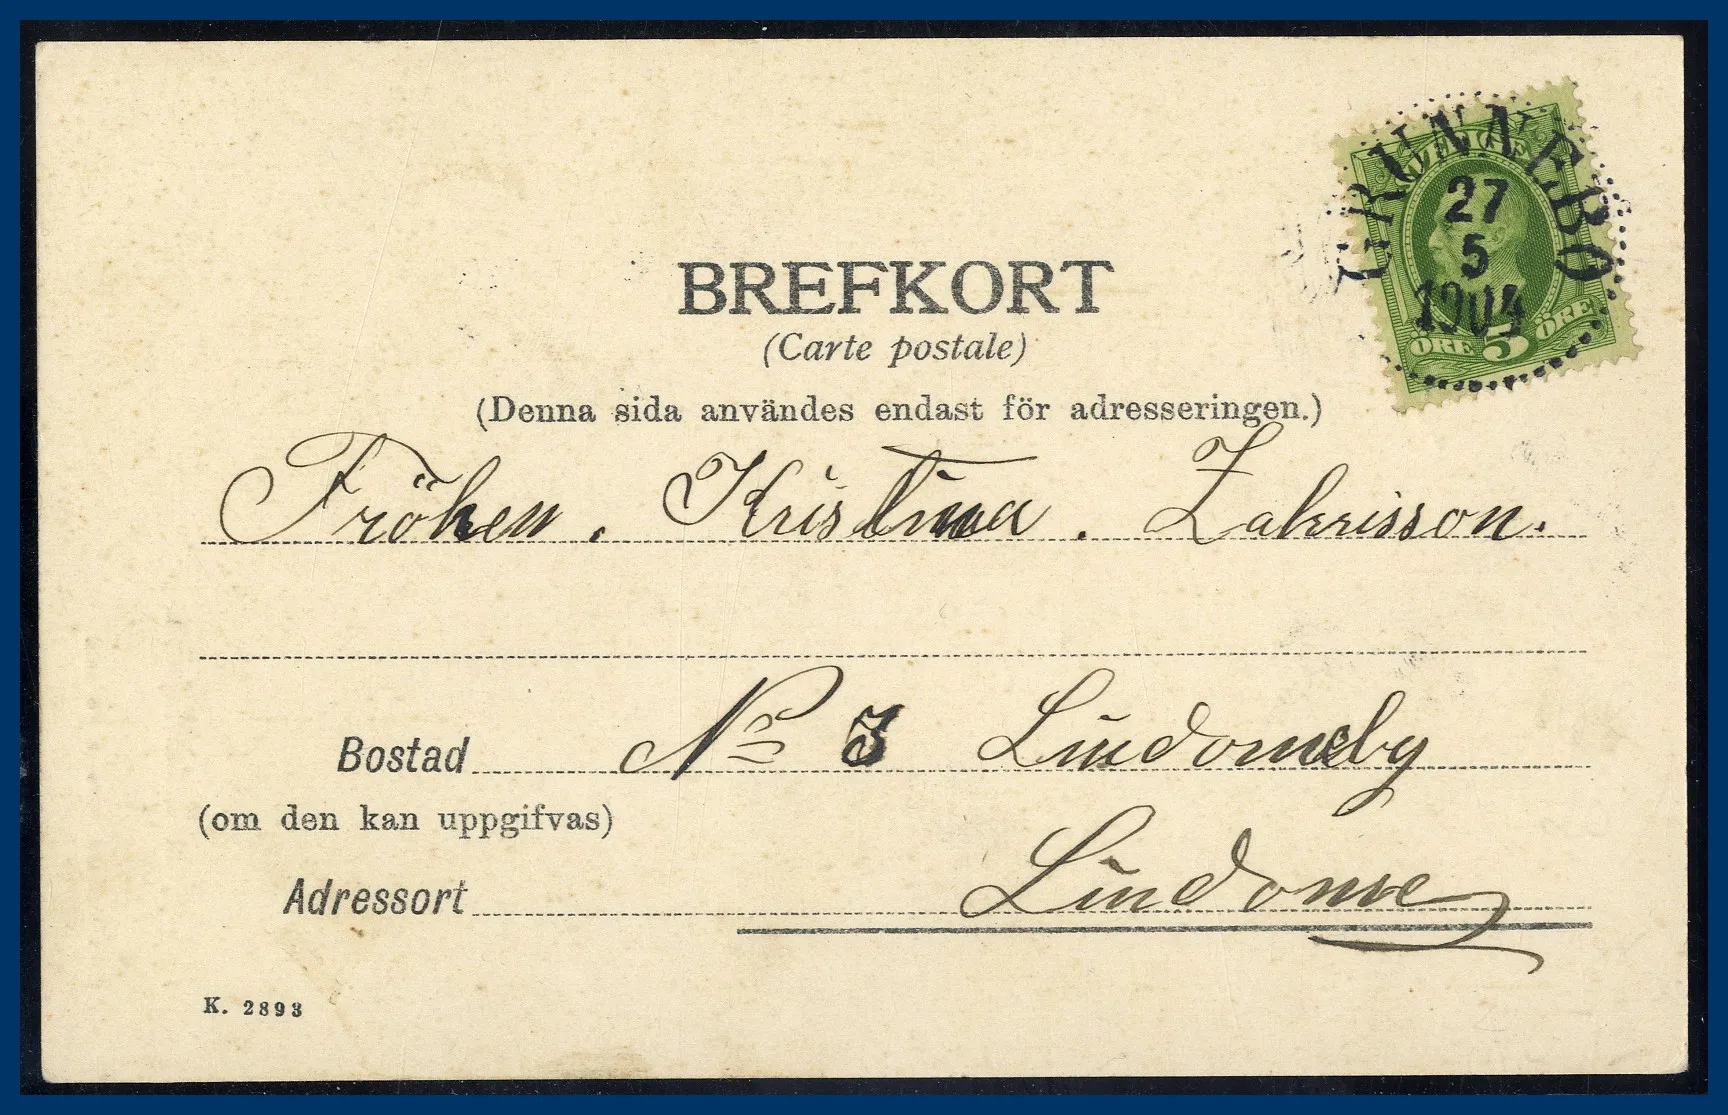 BREFKORT
(Carte postale)
(Denna sida användes endast för adresseringen.)
GRUNNEBO
27
5
1904
SVERIGE
ÖRE 5 ÖRE
Fröken. Kristina. Zakrisson.
Bostad No 3 Lindomeby
(om den kan uppgifvas)
Adressort Lindome
K. 2893